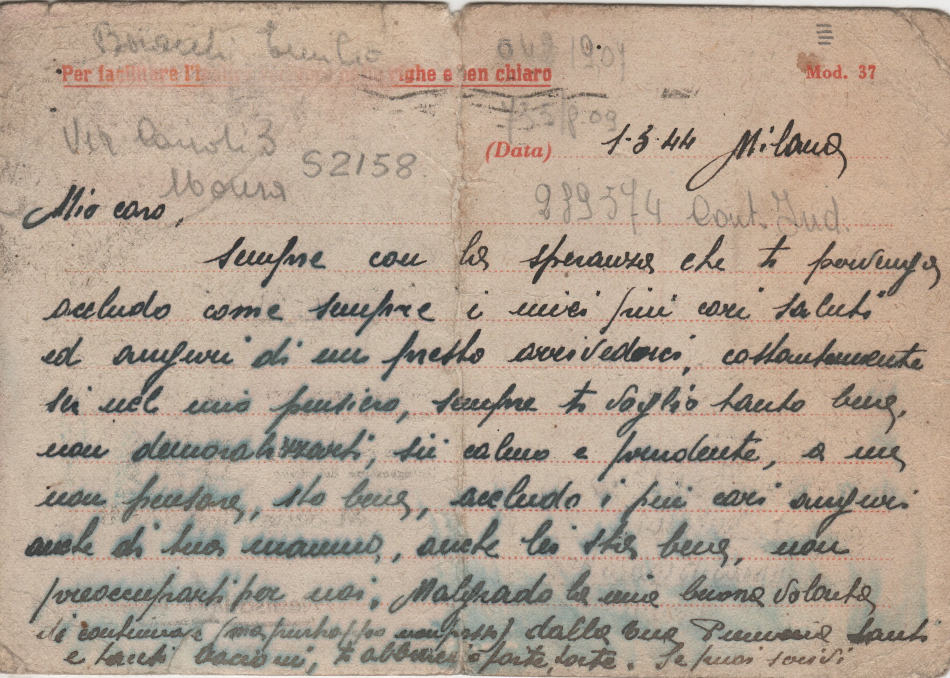 Emilio
Per facilitare righe e ben chiaro Mod. 37
Via 3
(Data) 1-3-44 Milano
S2158
289574 Cont. Ind.
Mio caro,
sempre con la speranza che ti pervenga
accludo come sempre i miei più cari saluti
ed auguri di un presto arrivederci, costantemente
sei nel mio pensiero, sempre ti voglio tanto bene,
non demoralizzarti, sii calmo e prudente, a me
non pensare, sto bene, accludo i più cari auguri
anche di tua mamma, anche lei sta bene, non
preoccuparti per noi. Malgrado la mia buona volontà
di continuare (ma purtroppo non posso) dalla tua tanti
e tanti bacioni, ti abbraccio forte, forte. Se puoi scrivi